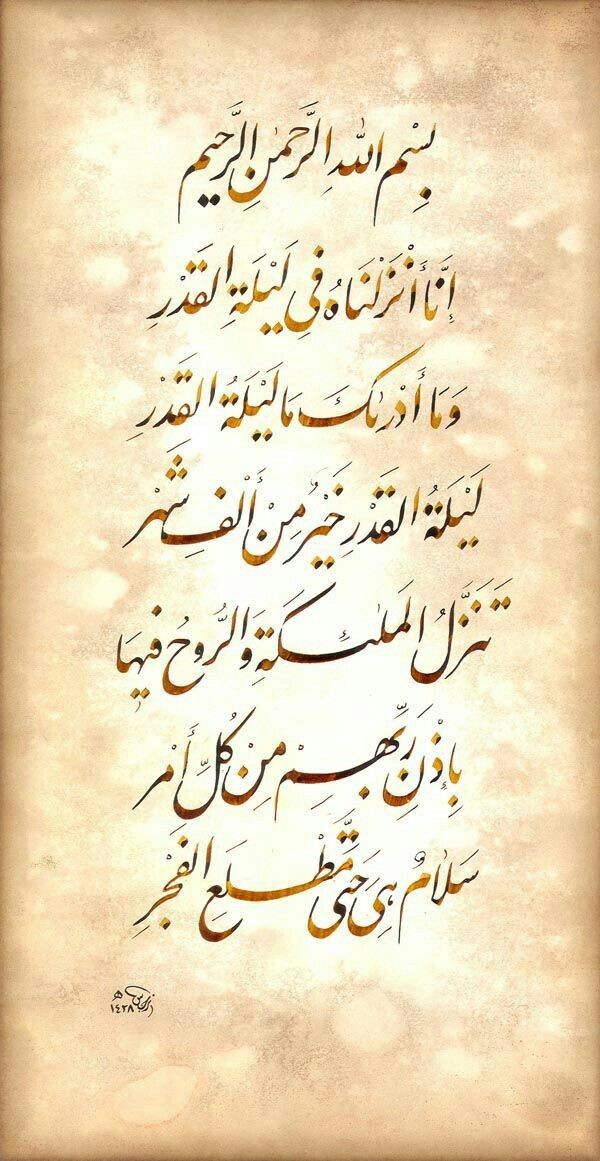 بِسْمِ اللهِ الرَّحمٰنِ الرَّحیم
إنَّا أَنْزَلْنَاهُ فِي لَيْلَةِ القَدْرِ
وَمَا أَدْرٰىكَ مَا لَيْلَةُ القَدْرِ
لَيْلَةُ القَدْرِ خَيْرٌ مِنْ أَلْفِ شَهْرٍ
تَنَزَّلُ المَلٰئكَةُ وَالرُّوحُ فيهَا
بِإذْنِ رَبِّهِمْ مِنْ كُلِّ أَمْرٍ
سَلَامٌ هِيَ حَتّٰى مَطْلَعِ الفَجْرِ
١٤٢٨ ھ